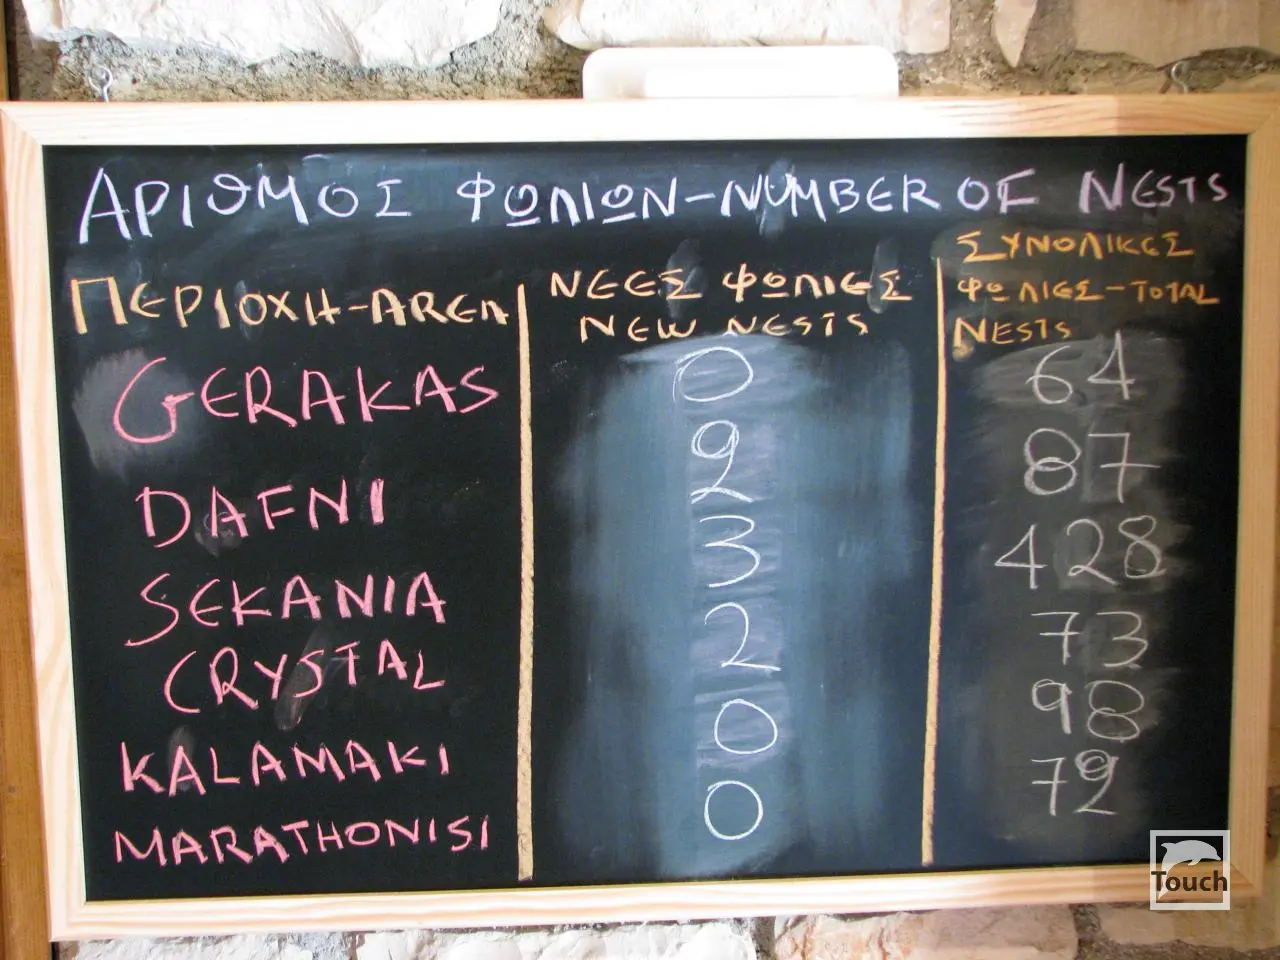 ΑΡΙΘΜΟΣ ΦΩΛΙΩΝ-NUMBER OF NESTS
ΠΕΡΙΟΧΗ-AREA ΝΕΕΣ ΦΩΛΙΕΣ ΣΥΝΟΛΙΚΕΣ
NEW NESTS ΦΩΛΙΕΣ-TOTAL
NESTS
GERAKAS 0 64
DAFNI 2 87
SEKANIA 3 428
CRYSTAL 2 73
KALAMAKI 0 98
MARATHONISI 0 72
Touch